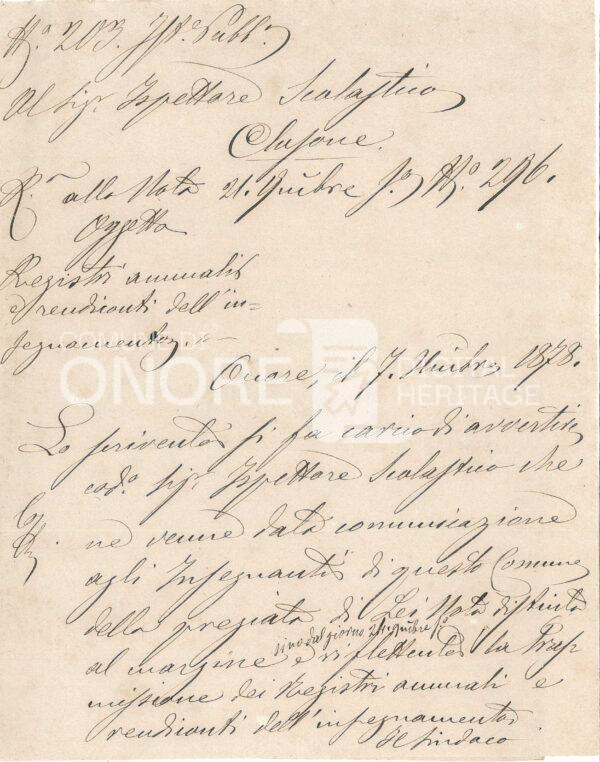 N.o 203. Ist.e Pubb.a
Al Sig.r Ispettore Scolastico
Clusone.
R. alla Nota 21. 9mbre N.o 296.
Oggetto
Registri annuali
e rendiconti dell'in-
segnamento
COMUNE DI
ONORE
DIGITAL
HERITAGE
Onore, il 7. Xmbre 1878.
Lo scrivente si fa carico di avvertire
cod.o Sig.r Ispettore Scolastico che
ne venne data comunicazione
agli Insegnanti di questo Comune
della pregiata di Lei Nota distinta
sino dal giorno 24 9mbre
al margine e riflettente la Tras-
missione dei Registri annuali e
rendiconti dell'insegnamento
Il Sindaco